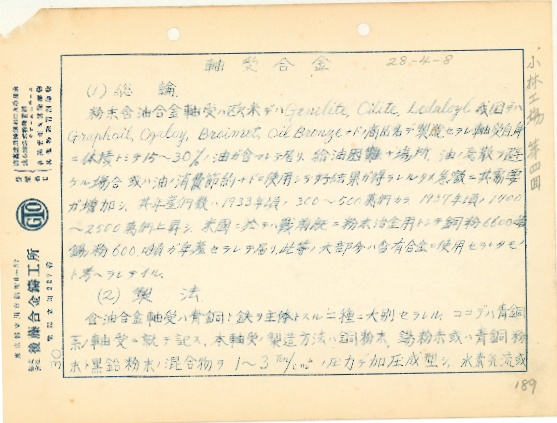 軸受合金
28-4-8
小林工場 第四回
(1) 総論
粉末含油合金軸受ハ欧米デハ Genelite, Oilite, Ledaloyl 我国デハ
Graphoil, Ogaloy, Braimet, Oil Bronze ナドノ商品名デ製産セラレ軸受自身
ニ体積トシテ15〜30%ノ油ガ含マレテ居リ、給油困難ナ場所、油ノ飛散ヲ
ケル場合或ハ油ノ消費節約ナドニ使用シテ好結果ガ得ラレルタメ急激ニ其需要
ガ増加シ、其年産個数ハ1933年頃ノ300〜500萬個カラ1937年頃ノ1900
〜2500萬個ニ上昇シ、米国ニ於テハ戦前既ニ粉末冶金用トシテ銅粉6600
錫粉600噸ガ年産セラレテ居リ此等ノ大部分ハ含有合金ニ使用セラレタモノ
ト考ヘラレテイル。
(2) 製法
含油合金軸受ハ青銅ト鉄ヲ主体トスル二種ニ大別セラレル、ココデハ青銅
系ノ軸受ニ就テ記ス、本軸受ノ製造方法ハ銅粉末、錫粉末或ハ青銅粉
末ト黒鉛粉末ノ混合物ヲ 1〜3 Ton/cm² ノ圧力デ加圧成型シ、水素気流或
189
30
GTO
後藤合金鑄工所